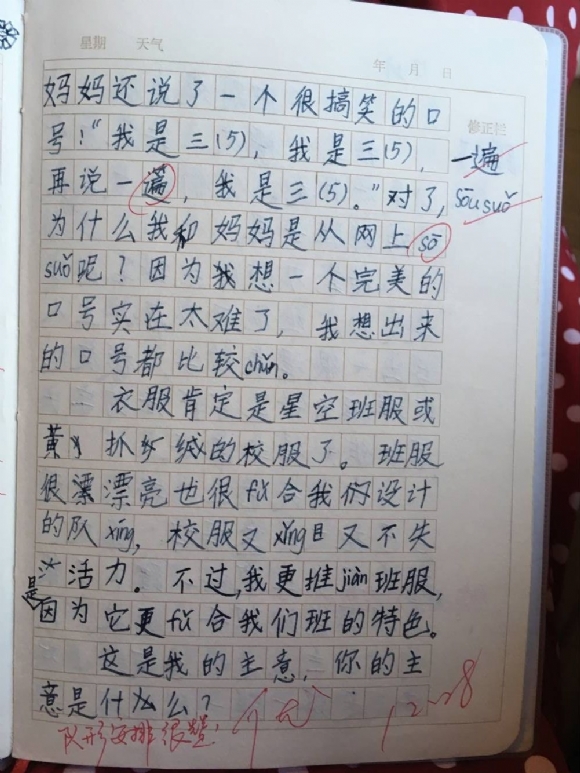 星期 天气
年 月 日
妈妈还说了一个很搞笑的口
修正栏
号！“我是三(5)，我是三(5)，
一遍
再说一遍，我是三(5)。”对了，
sōu suǒ
为什么我和妈妈是从网上sō
suǒ呢？因为我想一个完美的
口号实在太难了，我想出来
的口号都比较chǔn。
衣服肯定是星空班服或
黄 抓 绒的校服了。班服
很漂亮也很fú合我们设计
的队xíng，校服又xǐng目又不失
活力。不过，我更推jiàn班服，
是
因为它更fú合我们班的特色。
这是我的主意，你的主
意是什么？
队形安排很赞！
12.28